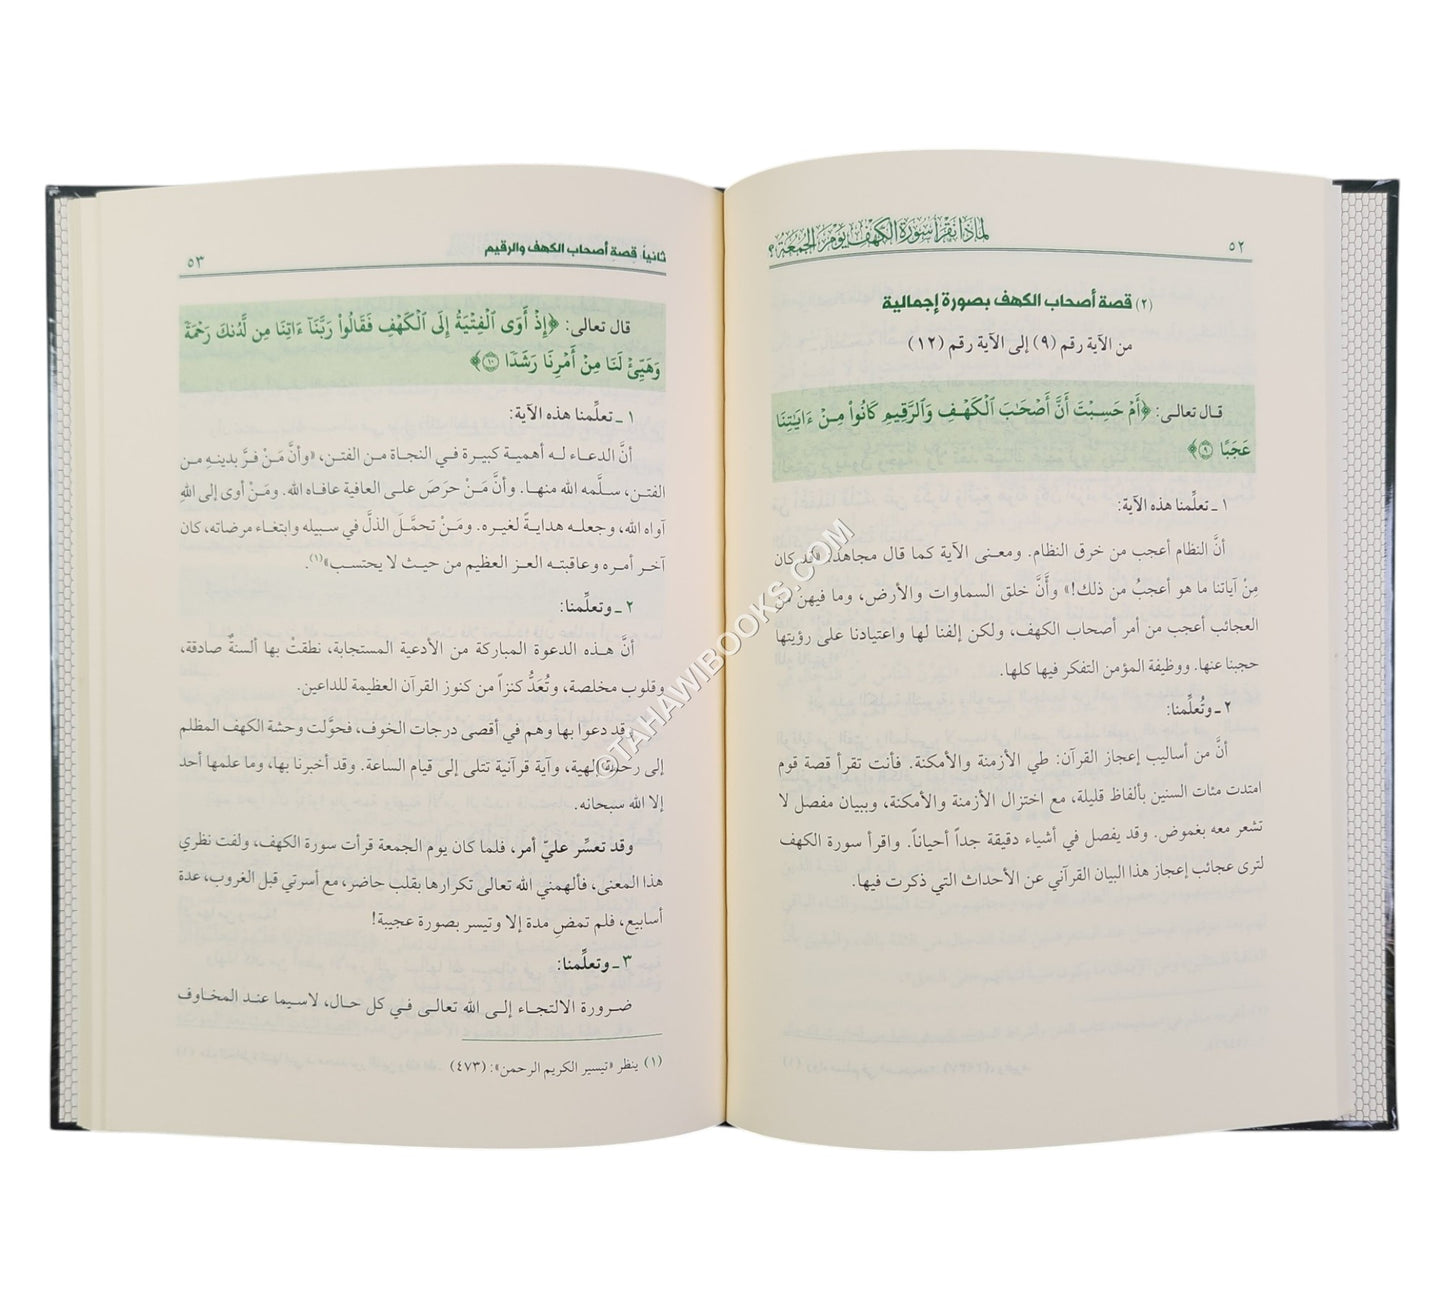 ٥٢
لماذا نقرأ سورة الكهف يوم الجمعة؟
(٢) قصة أصحاب الكهف بصورة إجمالية
من الآية رقم (٩) إلى الآية رقم (١٢)
قال تعالى: ﴿أَمْ حَسِبْتَ أَنَّ أَصْحَٰبَ ٱلْكَهْفِ وَٱلرَّقِيمِ كَانُوا۟ مِنْ ءَايَٰتِنَا
عَجَبًا ۝٩﴾
١ ـ تعلِّمنا هذه الآية:
أنَّ النظام أعجب من خرق النظام. ومعنى الآية كما قال مجاهد: «قد كان
مِنْ آياتنا ما هو أعجبُ من ذلك!» وأنَّ خلق السماوات والأرض، وما فيهنَّ من
العجائب أعجب من أمر أصحاب الكهف، ولكن إلفنا لها واعتيادنا على رؤيتها
حجبنا عنها. ووظيفة المؤمن التفكر فيها كلها.
٢ ـ وتُعلِّمنا:
أنَّ من أساليب إعجاز القرآن: طي الأزمنة والأمكنة. فأنت تقرأ قصة قوم
امتدت مئات السنين بألفاظ قليلة، مع اختزال الأزمنة والأمكنة، وببيان مفصل لا
تشعر معه بغموض. وقد يفصل في أشياء دقيقة جداً أحياناً. واقرأ سورة الكهف
لترى عجائب إعجاز هذا البيان القرآني عن الأحداث التي ذكرت فيها.
ثانياً: قصة أصحاب الكهف والرقيم
٥٣
قال تعالى: ﴿إِذْ أَوَى ٱلْفِتْيَةُ إِلَى ٱلْكَهْفِ فَقَالُوا۟ رَبَّنَآ ءَاتِنَا مِن لَّدُنكَ رَحْمَةً
وَهَيِّئْ لَنَا مِنْ أَمْرِنَا رَشَدًا ۝١٠﴾
١ ـ تعلِّمنا هذه الآية:
أنَّ الدعاء له أهمية كبيرة في النجاة من الفتن، «وأنَّ مَنْ فرَّ بدينهِ من
الفتن، سلَّمه الله منها. وأنَّ مَنْ حرَصَ على العافية عافاه الله. ومَنْ أوى إلى اللهِ
آواه الله، وجعله هدايةً لغيره. ومَنْ تحمَّلَ الذلَّ في سبيله وابتغاء مرضاته، كان
آخر أمره وعاقبته العز العظيم من حيث لا يحتسب»(١).
٢ ـ وتعلِّمنا:
أنَّ هذه الدعوة المباركة من الأدعية المستجابة، نطقتْ بها ألسنةٌ صادقة،
وقلوب مخلصة، وتُعَدُّ كنزاً من كنوز القرآن العظيمة للداعين.
وقد دعوا بها وهم في أقصى درجات الخوف، فحوَّلت وحشة الكهف المظلم
إلى رحمة إلهية، وآية قرآنية تتلى إلى قيام الساعة. وقد أخبرنا بها، وما علمها أحد
إلا الله سبحانه.
وقد تعسَّر عليّ أمر، فلما كان يوم الجمعة قرأت سورة الكهف، ولفت نظري
هذا المعنى، فألهمني الله تعالى تكرارها بقلب حاضر، مع أسرتي قبل الغروب، عدة
أسابيع، فلم تمضِ مدة إلا وتيسر بصورة عجيبة!
٣ ـ وتعلِّمنا:
ضرورة الالتجاء إلى الله تعالى في كل حال، لاسيما عند المخاوف
(١) ينظر «تيسير الكريم الرحمن»: (٤٧٣)
©TAHAWIBOOKS.COM